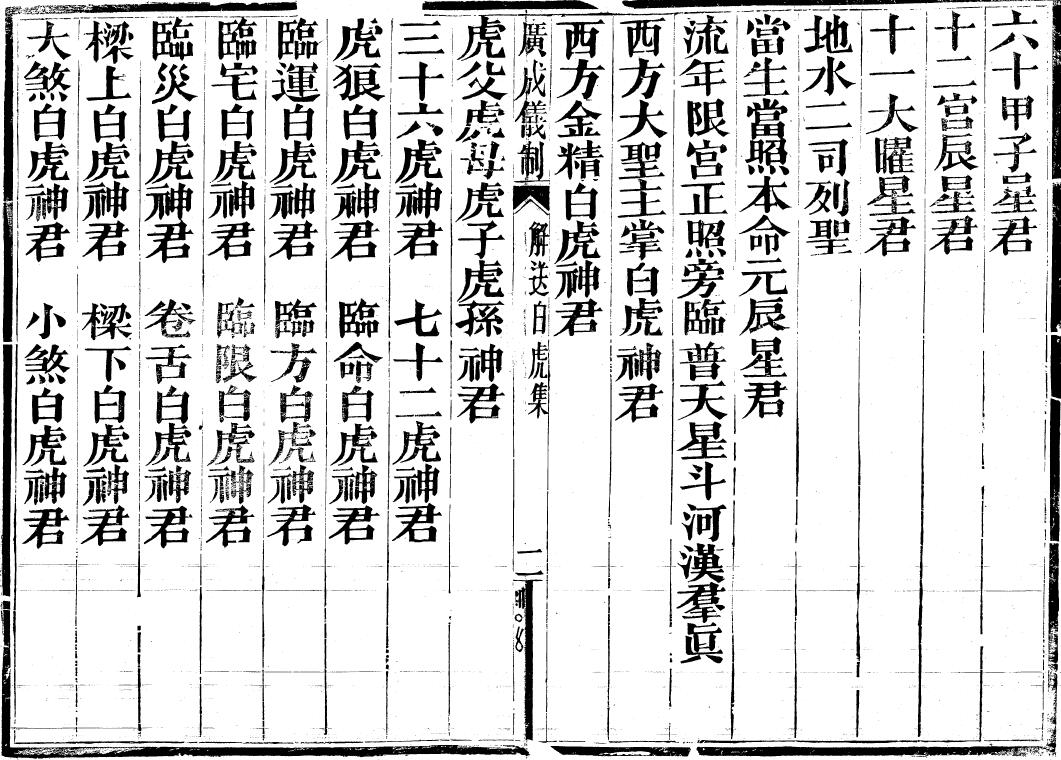 六十甲子星君
十二宮辰星君
十一大曜星君
地水二司列聖
當生當照本命元辰星君
流年限宮正照旁臨普天星斗河漢羣眞
西方大聖主掌白虎神君
西方金精白虎神君
廣成儀制 解送白虎集 二
虎父虎母虎子虎孫神君
三十六虎神君 七十二虎神君
虎狼白虎神君 臨命白虎神君
臨運白虎神君 臨方白虎神君
臨宅白虎神君 臨限白虎神君
臨災白虎神君 卷舌白虎神君
樑上白虎神君 樑下白虎神君
大煞白虎神君 小煞白虎神君